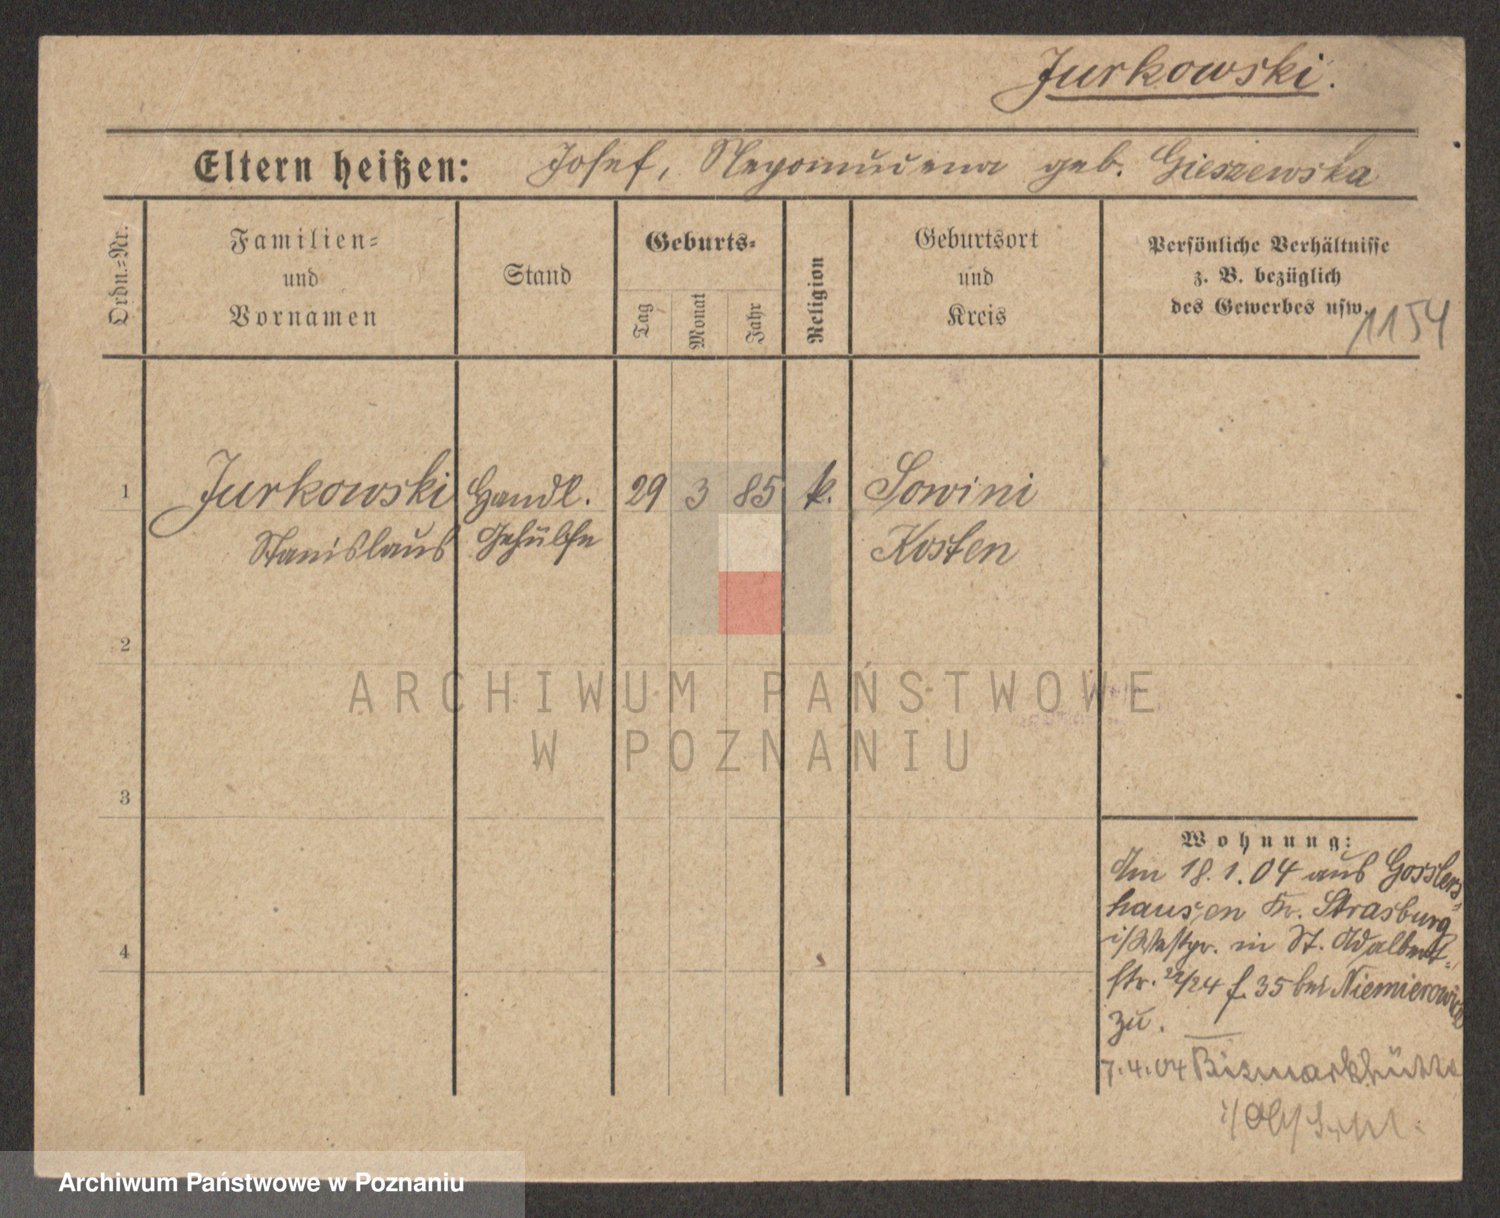 Jurkowski.
Eltern heißen: Josef, Nepomucena geb. Gieszewska
Ordn.-Nr.
Familien-
und
Vornamen
Stand
Geburts-
Tag
Monat
Jahr
Religion
Geburtsort
und
Kreis
Persönliche Verhältnisse
z. B. bezüglich
des Gewerbes usw.
1154
1 Jurkowski Handl. 29 3 85 k. Sowini
Stanislaus Gehülfe Kosten
2
ARCHIWUM PAŃSTWOWE
W POZNANIU
3
Wohnung:
Am 18.1.04 aus Gosslers-
hausen Kr. Strasburg
i/Westpr. in St. Adalbert-
str. 22/24 f. 35 bei Niemierowicz
zu.
7.4.04 Bismarkhütte
4
Archiwum Państwowe w Poznaniu